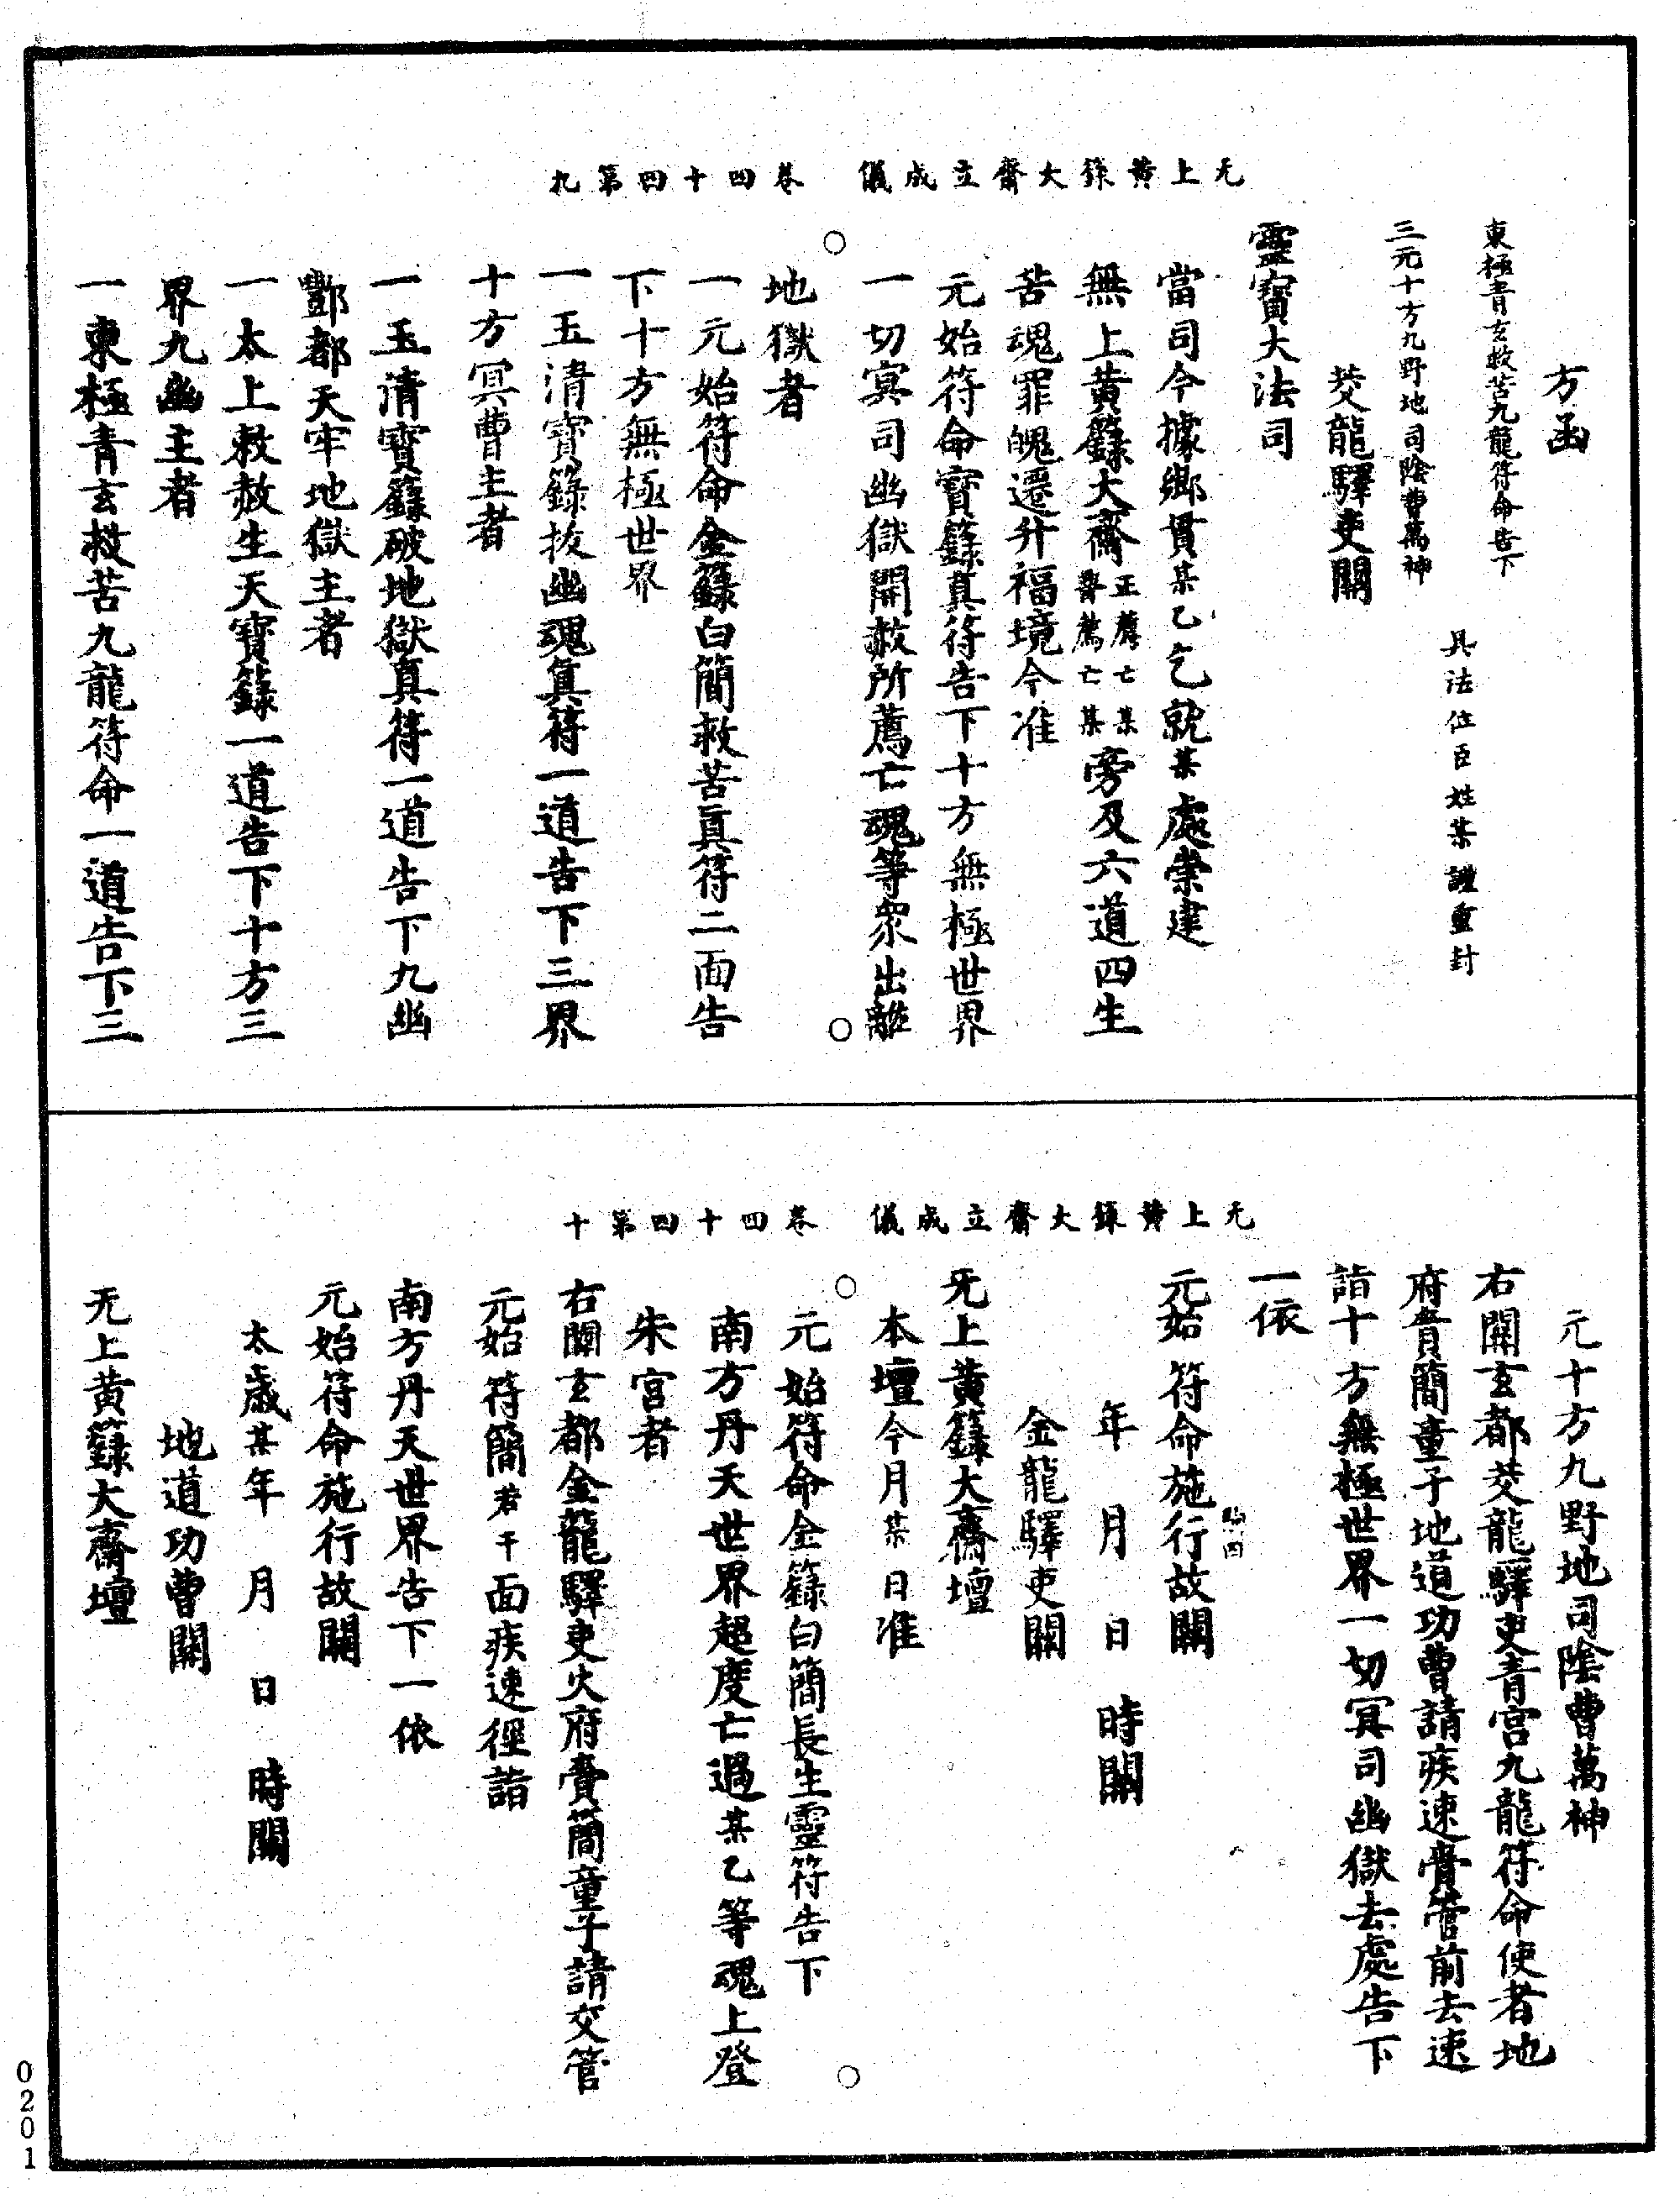 无上黄籙大齋立成儀　卷四十四第九
方函
東極青玄救苦九龍符命告下
三元十方九野地司陰曹萬神
具法位臣姓某謹重封
茭龍驛吏關
靈寶大法司
當司今據鄉貫某乙乞就某處崇建
無上黄籙大齋正薦亡某普薦亡某旁及六道四生
苦魂罪魄遷升福境今准
元始符命寶籙真符告下十方無極世界
一切㝠司幽獄開赦所薦亡魂等衆出離
地獄者
一元始符命金籙白簡救苦真符二面告
下十方無極世界
一玉清寶籙拔幽魂真符一道告下三界
十方冥曹主者
一玉清寶籙破地獄真符一道告下九幽
酆都天牢地獄主者
一太上敕赦生天寶籙一道告下十方三
界九幽主者
一東極青玄救苦九龍符命一道告下三
无上黄籙大齋立成儀　卷四十四第十
元十方九野地司陰曹萬神
右關玄都茭龍驛吏青宫九龍符命使者地
府賫簡童子地道功曹請疾速賫管前去速
詣十方無極世界一切冥司幽獄去處告下
一依
元始符命施行故關
年　月　日　時關
金龍驛吏關
无上黄籙大齋壇
本壇今月某日准
元始符命金籙白簡長生靈符告下
南方丹天世界超度亡過某乙等魂上登
朱宫者
右關玄都金龍驛吏火府賫簡童子請交管
元始符簡若干面疾速徑詣
南方丹天世界告下一依
元始符命施行故關
太歲某年　月　日　時關
地道功曹關
无上黄籙大齋壇
0201